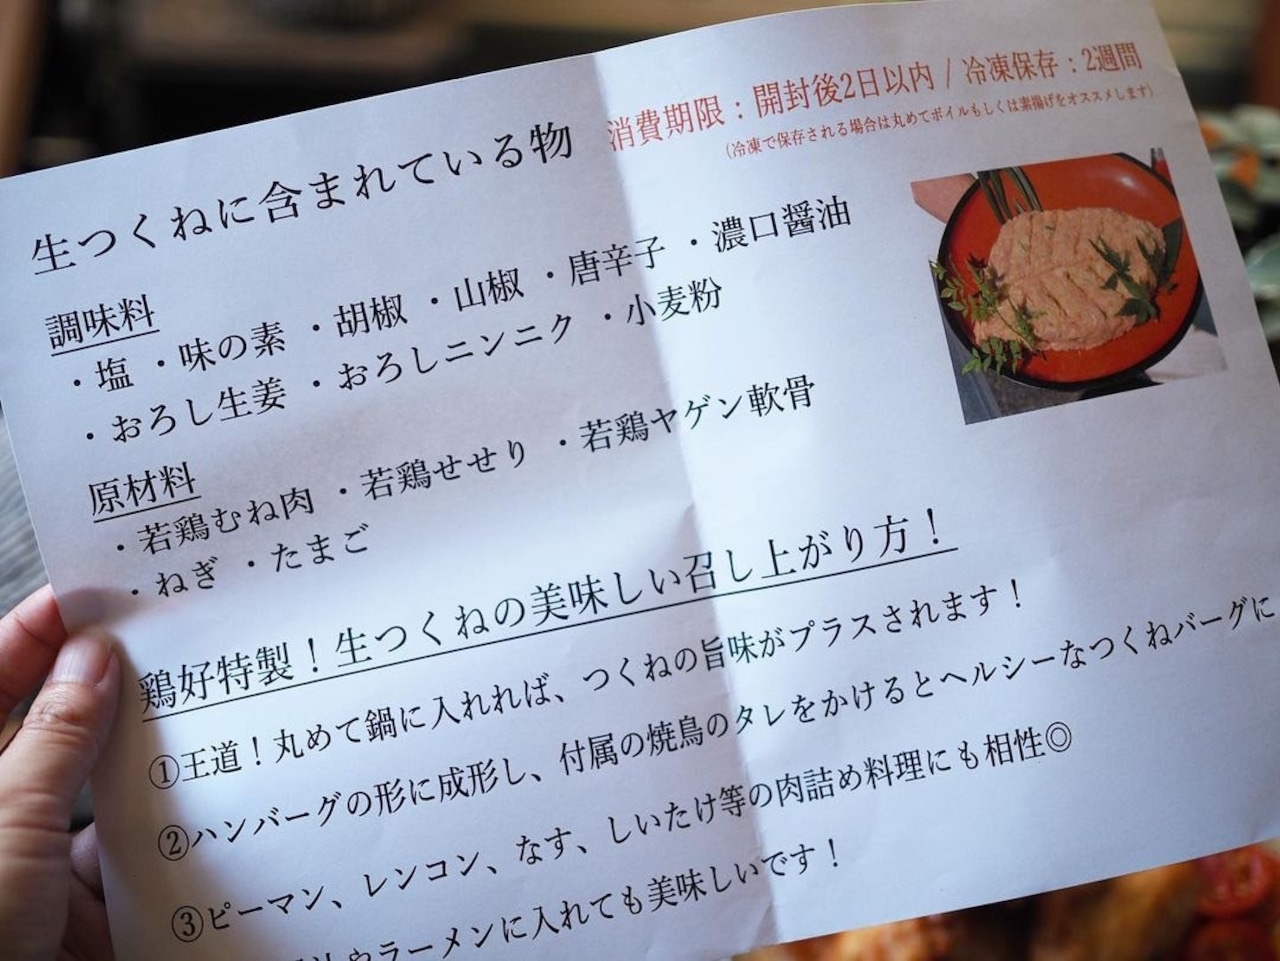 生つくねに含まれている物
消費期限：開封後2日以内 / 冷凍保存：2週間
(冷凍で保存される場合は丸めてボイルもしくは素揚げをオススメします)
調味料
・塩 ・味の素 ・胡椒 ・山椒 ・唐辛子 ・濃口醤油
・おろし生姜 ・おろしニンニク ・小麦粉
原材料
・若鶏むね肉 ・若鶏せせり ・若鶏ヤゲン軟骨
・ねぎ ・たまご
鶏好特製！生つくねの美味しい召し上がり方！
①王道！丸めて鍋に入れれば、つくねの旨味がプラスされます！
②ハンバーグの形に成形し、付属の焼鳥のタレをかけるとヘルシーなつくねバーグに
③ピーマン、レンコン、なす、しいたけ等の肉詰め料理にも相性◎
やラーメンに入れても美味しいです！